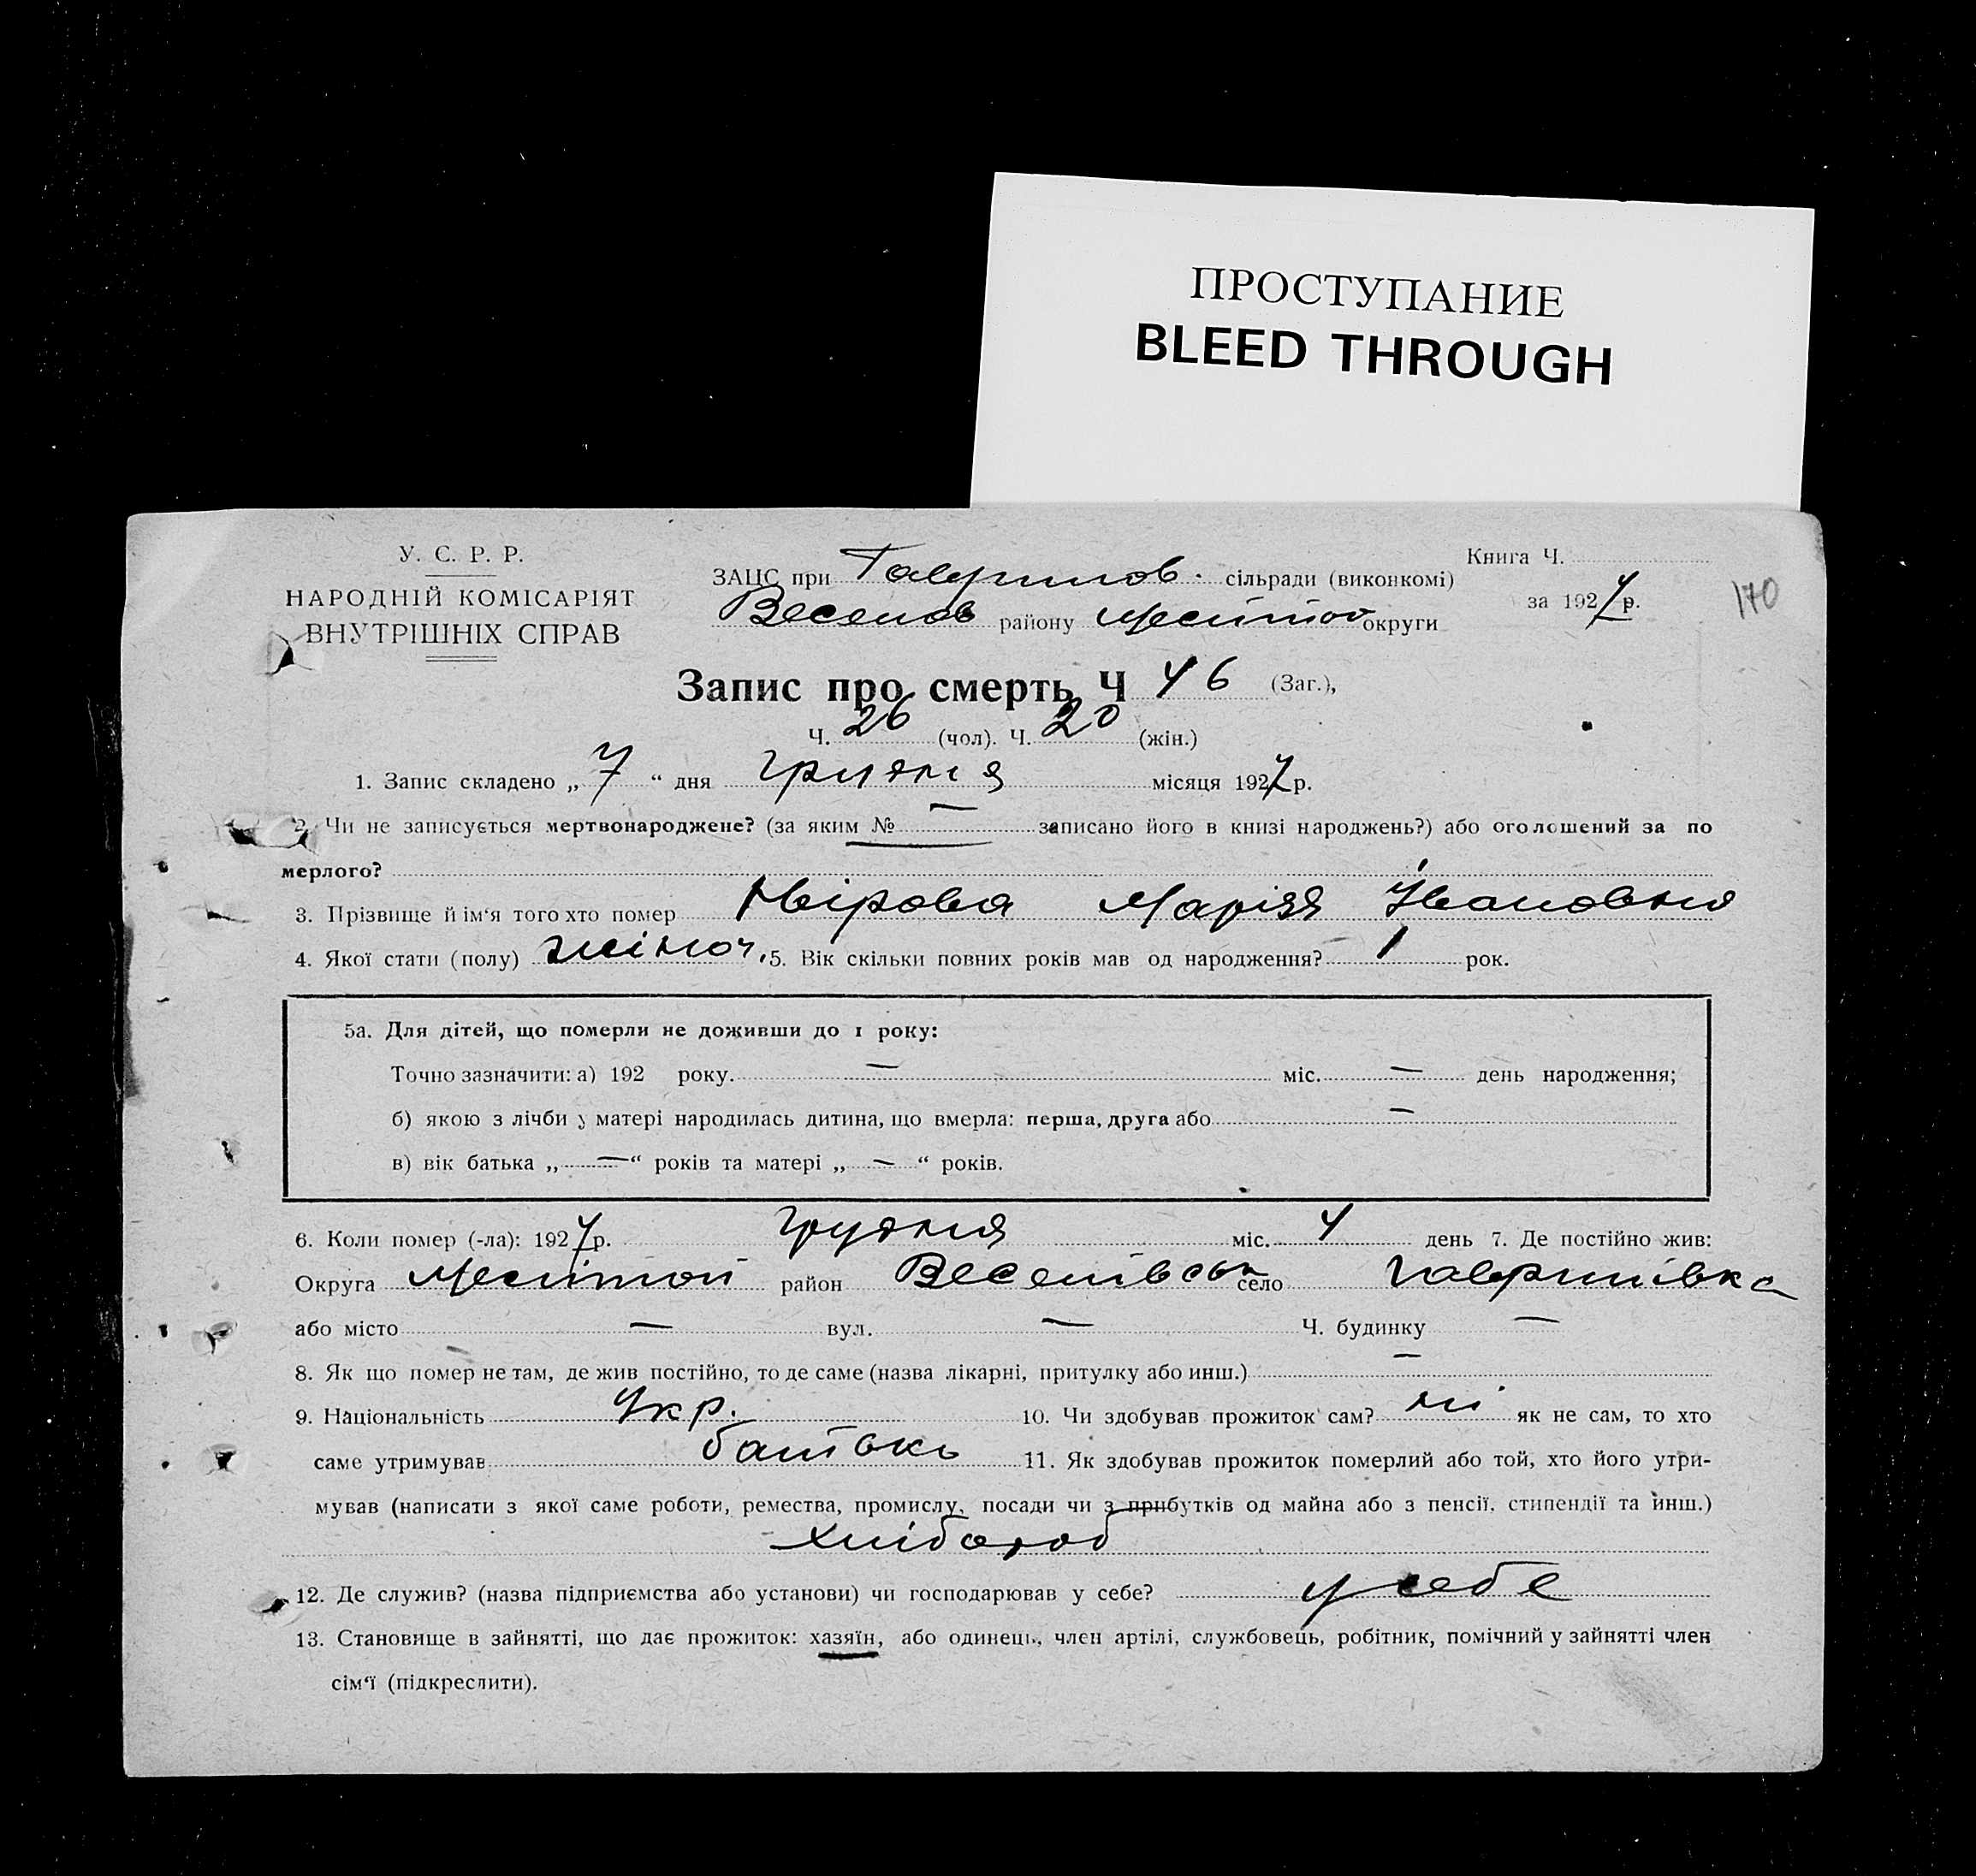 ПРОСТУПАНИЕ
BLEED THROUGH
У. С. Р. Р.
НАРОДНІЙ КОМІСАРІЯТ
ВНУТРІШНІХ СПРАВ
Книга Ч.
ЗАЦС при Гаврилов. сільради (виконкомі)
за 1927 р.
170
Веселов району Мелітоп округи
Запис про смерть Ч 46 (Заг.),
Ч. 26 (чол). Ч. 20 (жін.)
1. Запис складено „ 7 “ дня грудня місяця 1927 р.
2. Чи не записується мертвонароджене? (за яким № — записано його в книзі народжень?) або оголошений за по
мерлого?
3. Прізвище й ім‘я того хто помер Марія Івановна
4. Якої стати (полу) жіноч. 5. Вік скільки повних років мав од народження? 1 рок.
5а. Для дітей, що померли не доживши до 1 року:
Точно зазначити: а) 192 року. — міс. — день народження;
б) якою з лічби у матері народилась дитина, що вмерла: перша, друга або —
в) вік батька „ — “ років та матері „ — “ років.
6. Коли помер (-ла): 1927 р. грудня міс. 4 день 7. Де постійно жив:
Округа Мелітоп район Веселівськ село Гаврилівка
або місто — вул. — Ч. будинку —
8. Як що помер не там, де жив постійно, то де саме (назва лікарні, притулку або инш.) —
9. Національність Укр. 10. Чи здобував прожиток сам? ні як не сам, то хто
саме утримував батько 11. Як здобував прожиток померлий або той, хто його утри-
мував (написати з якої саме роботи, ремества, промислу, посади чи з прибутків од майна або з пенсії, стипендії та инш.)
хлібороб
12. Де служив? (назва підприємства або установи) чи господарював у себе? у себе
13. Становище в зайнятті, що дає прожиток: хазяїн, або одинець, член артілі, службовець, робітник, помічний у зайнятті член
сім‘ї (підкреслити).